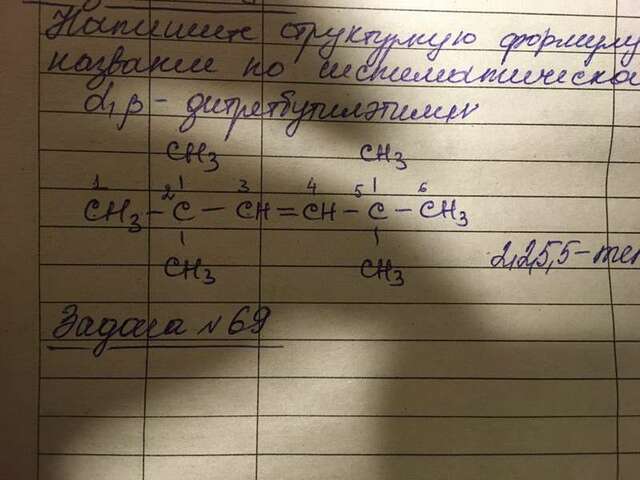 Напишите структурную формулу
название по систематическо
α,β - дитретбутилэтилен
CH3 CH3
1 2 3 4 5 6
CH3 - C - CH = CH - C - CH3
CH3 CH3
2,2,5,5-тет
Задача №69